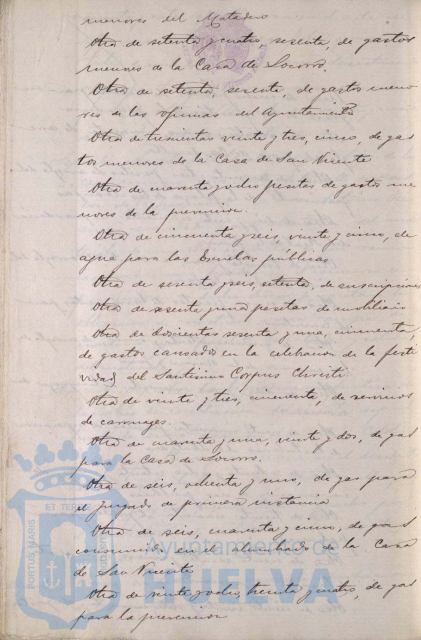 menores del Matadero
Otra de setenta y cuatro, sesenta, de gastos
menores de la Casa de Socorro.
Otra de setenta, sesenta, de gastos meno-
res de las oficinas del Ayuntamiento
Otra de trescientas veinte y tres, cinco, de gas-
tos menores de la Casa de San Vicente
Otra de cuarenta y ocho pesetas de gastos me-
nores de la prevencion.
Otra de cincuenta y seis, veinte y cinco, de
agua para las Escuelas públicas
Otra de sesenta y seis, setenta, de suscripciones
Otra de sesenta y una pesetas de mobiliario
Otra de doscientas sesenta y una, cincuenta,
de gastos causados en la celebracion de la festi-
vidad del Santísimo Corpus Christi
Otra de veinte y tres, cincuenta, de servicios
de carruages.
Otra de cuarenta y una, veinte y dos, de gas
para la Casa de Socorro.
Otra de seis, ochenta y uno, de gas para
el juzgado de primera instancia
Otra de seis, cuarenta y cinco, de gas
consumido en el alumbrado de la Casa
de San Vicente
Otra de veinte y ocho, treinta y cuatro, de gas
para la prevencion
PORTUS MARIS ET TERRAE
Ayuntamiento de
HUELVA